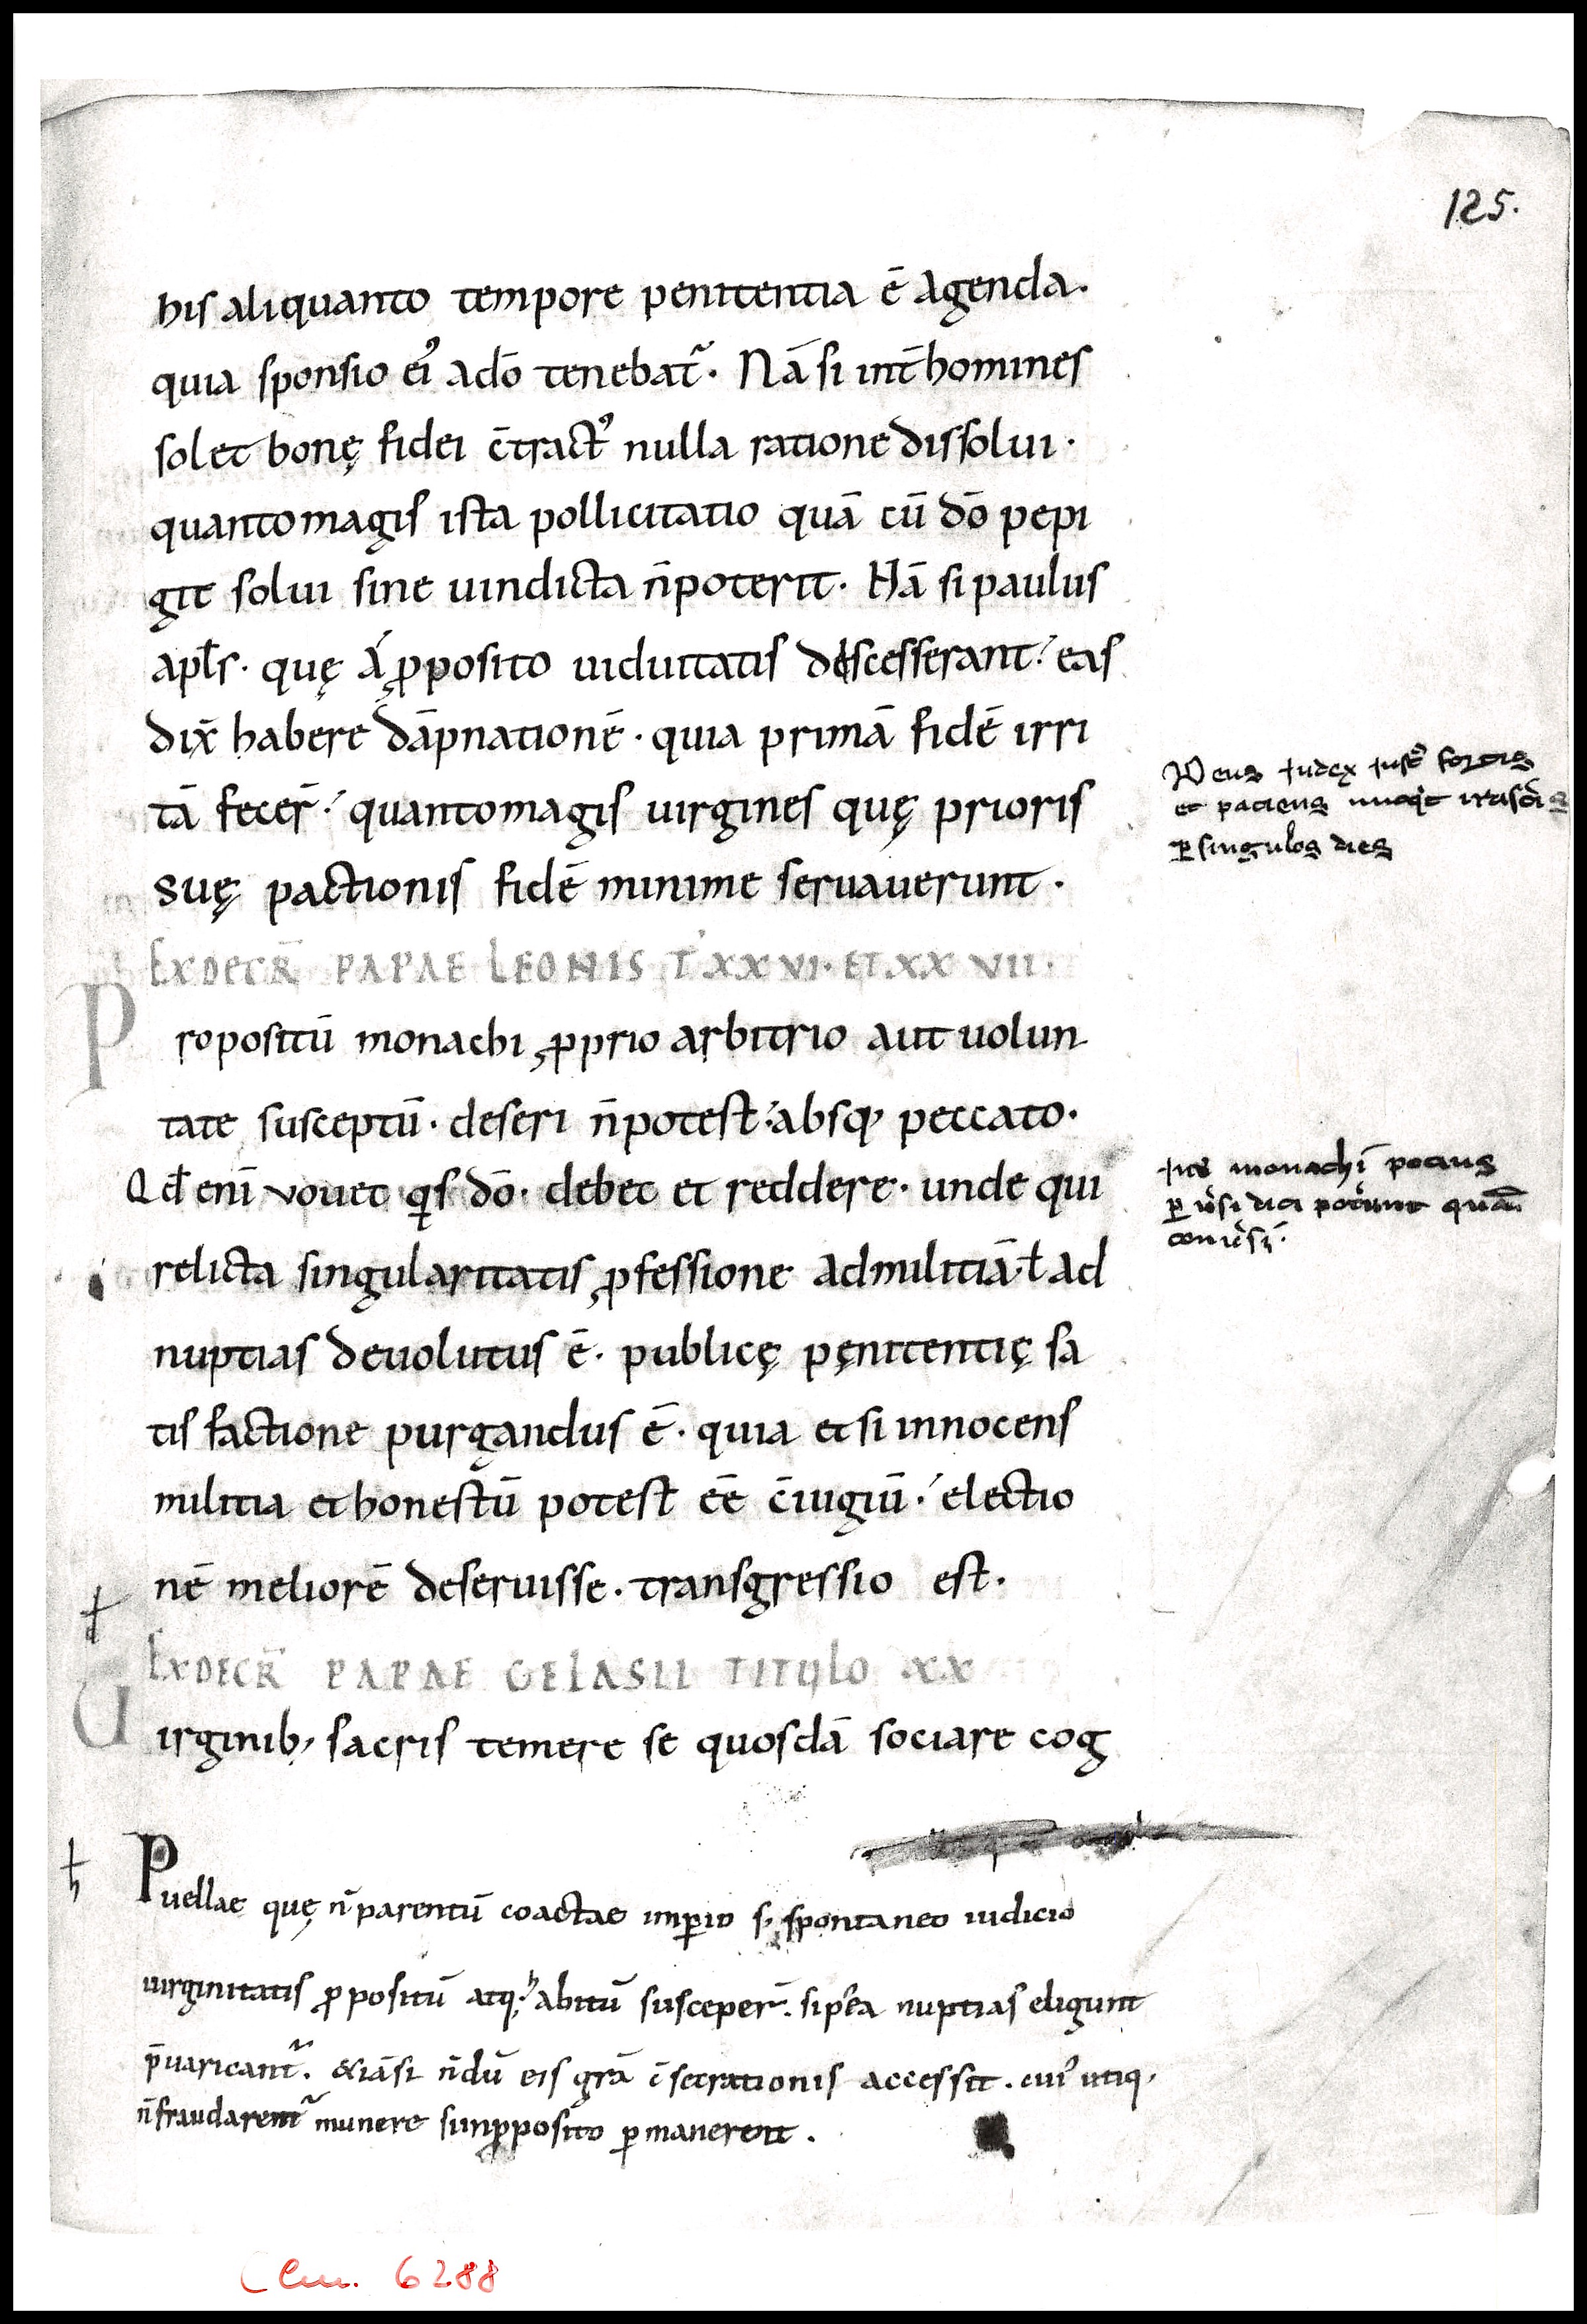 125.
his aliquanto tempore penitentia ē agenda.
quia sponsio ei᾽ adō tenebat᷑. Nā si int̄ homines
solet bonę fidei c̄tract᾽ nulla ratione dissolui.
quantomagis ista pollicitatio quā cū dō pepi
git solui sine uindicta n̄ poterit. Nā si paulus
apłs. quę á ꝓposito uiduitatis discesserant. eas
dix̄ habere dāpnationē. quia primā fidē irri
tā fecer̄. quantomagis uirgines quę prioris
suę pactionis fidē minime seruauerunt.
Deus iudex iust᾽ fortis
et paciens
ꝑ singulos dies
EX DECR̄ PAPAE LEONIS T̄ XXVI. ET XXVII.
Propositū monachi ꝓprio arbitrio aut uolun
tate susceptū. deseri n̄ potest. absq, peccato.
Qđ enī vouet qis dō. debet et reddere. unde qui
relicta singularitatis ꝓfessione admilitiā ł ad
nuptias deuolutus ē. publicę pęnitentię sa
tis factione purgandus ē. quia et si innocens
militia et honestū potest eē c̄iugiū. electio
nē meliorē deseruisse. transgressio est.
monachi pocius
dici quā
EX DECR̄ PAPAE GELASII TITULO XX
Uirginib, sacris temere se quosdā sociare cog
Puellae quę n̄ parentū coactae imꝑio s, spontaneo iudicio
uirginitatis ꝓpositū atq, habitū susceper̄. si p᾽ea nuptias eligunt
p̄uaricant᷑. &iāsi n̄dū eis grā c̄secrationis accessit. cui᾽ utiq,
n̄ fraudarent᷑ munere si inꝓposito ꝑmanerent.
Clm. 6288